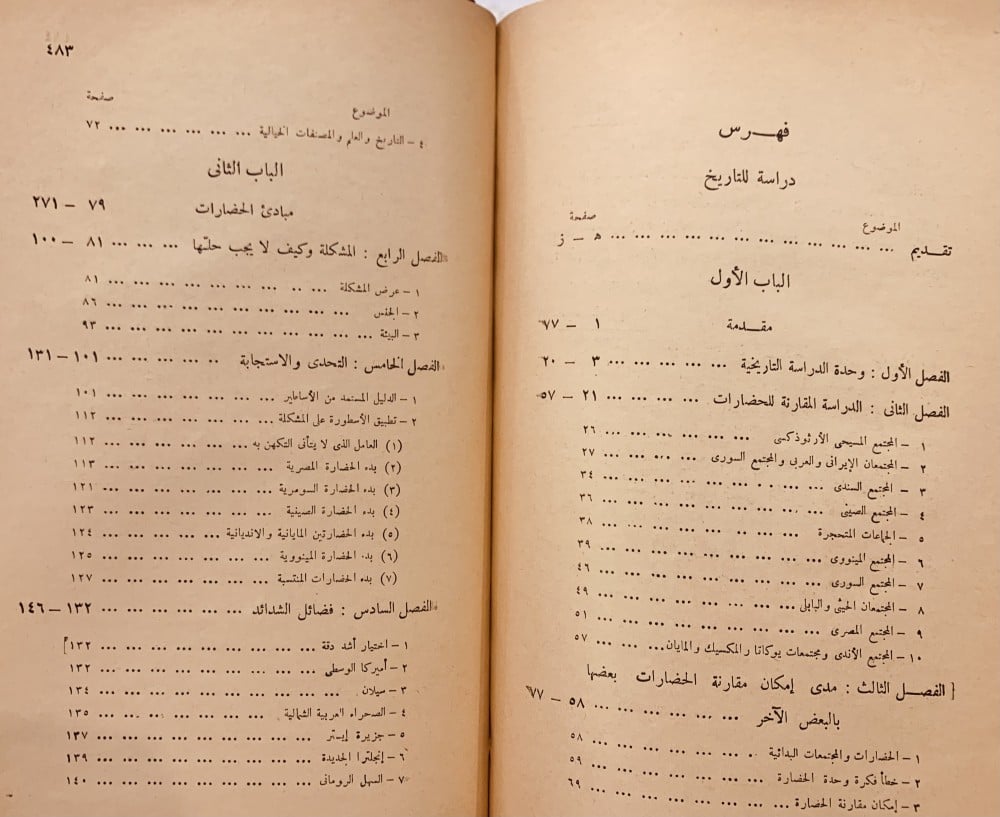 فهرس
دراسة للتاريخ
الموضوع صفحة
تقديم ... ... ... ... ... ... ... ... ... ... ... ... ه – ز
الباب الأول
مقدمة ١ – ٧٧
الفصل الأول : وحدة الدراسة التاريخية ... ... ... ... ... ٣ – ٢٠
الفصل الثانى : الدراسة المقارنة للحضارات ... ... ... ... ٢١ – ٥٧
١ – المجتمع المسيحى الأرثوذكسى ... ... ... ... ... ... ... ٢٦
٢ – المجتمعان الإيرانى والعربى والمجتمع السورى ... ... ... ... ٢٧
٣ – المجتمع السندى ... ... ... ... ... ... ... ... ... ٣٤
٤ – المجتمع الصينى ... ... ... ... ... ... ... ... ... ٣٦
٥ – الجماعات المتحجرة ... ... ... ... ... ... ... ... ٣٨
٦ – المجتمع المينووى ... ... ... ... ... ... ... ... ... ٣٩
٧ – المجتمع السورى ... ... ... ... ... ... ... ... ... ٤٦
٨ – المجتمعان الحيثى والبابلى ... ... ... ... ... ... ... ... ٤٩
٩ – المجتمع المصرى ... ... ... ... ... ... ... ... ... ٥١
١٠ – المجتمع الأندى ومجتمعات يوكاتا والمكسيك والمايان ... ... ... ٥٧
[ الفصل الثالث : مدى إمكان مقارنة الحضارات بعضها
بالبعض الآخر ... ... ... ... ... ... ٥٨ – ٧٧
١ – الحضارات والمجتمعات البدائية ... ... ... ... ... ... ... ٥٨
٢ – خطأ فكرة وحدة الحضارة ... ... ... ... ... ... ... ٥٩
٣ – إمكان مقارنة الحضارة ... ... ... ... ... ... ... ... ٦٩
٤٨٣
الموضوع صفحة
٤ – التاريخ والعلم والمصنفات الخيالية ... ... ... ... ... ... ٧٢
الباب الثانى
مبادئ الحضارات ٧٩ – ٢٧١
الفصل الرابع : المشكلة وكيف لا يجب حلّها ... ... ... ... ٨١ – ١٠٠
١ – عرض المشكلة ... ... ... ... ... ... ... ... ... ٨١
٢ – الجنس ... ... ... ... ... ... ... ... ... ... ٨٦
٣ – البيئة ... ... ... ... ... ... ... ... ... ... ... ٩٣
الفصل الخامس : التحدى والاستجابة ... ... ... ... ... ١٠١ – ١٣١
١ – الدليل المستمد من الأساطير ... ... ... ... ... ... ... ١٠١
٢ – تطبيق الأسطورة على المشكلة ... ... ... ... ... ... ... ١١٢
(١) العامل الذى لا يتأتى التكهن به ... ... ... ... ... ... ١١٢
(٢) بدء الحضارة المصرية ... ... ... ... ... ... ... ١١٣
(٣) بدء الحضارة السومرية ... ... ... ... ... ... ... ١٢١
(٤) بدء الحضارة الصينية ... ... ... ... ... ... ... ١٢٣
(٥) بدء الحضارتين المايانية والانديانية ... ... ... ... ... ١٢٤
(٦) بدء الحضارة المينووية ... ... ... ... ... ... ... ١٢٥
(٧) بدء الحضارات المنتسبة ... ... ... ... ... ... ... ١٢٧
الفصل السادس : فضائل الشدائد ... ... ... ... ... ... ١٣٢ – ١٤٦
١ – اختيار أشد دقة ... ... ... ... ... ... ... ... ... ١٣٢]
٢ – أميركا الوسطى ... ... ... ... ... ... ... ... ... ١٣٢
٣ – سيلان ... ... ... ... ... ... ... ... ... ... ١٣٤
٤ – الصحراء العربية الشمالية ... ... ... ... ... ... ... ١٣٥
٥ – جزيرة إيستر ... ... ... ... ... ... ... ... ... ١٣٧
٦ – إنجلترا الجديدة ... ... ... ... ... ... ... ... ... ١٣٩
٧ – السهل الرومانى ... ... ... ... ... ... ... ... ... ١٤٠